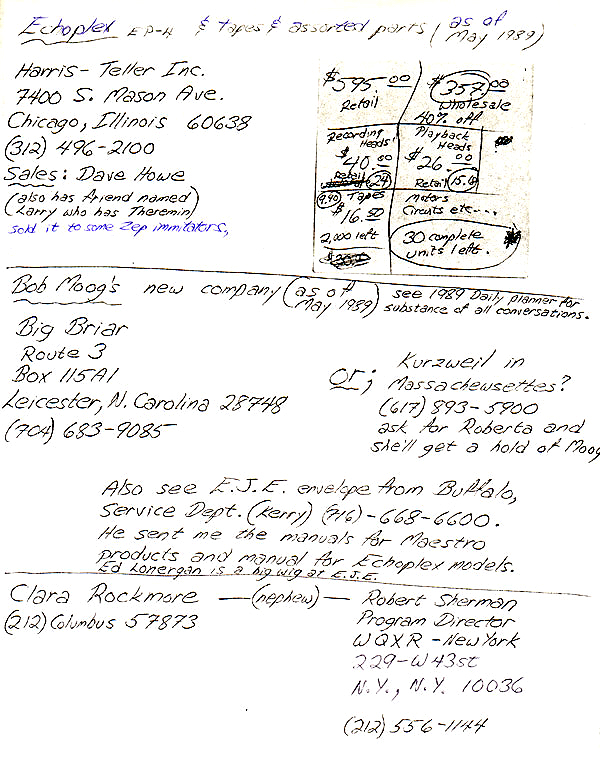 Echoplex EP-4 & Tapes & assorted parts (as of May 1989)
Harris-Teller Inc.
7400 S. Mason Ave.
Chicago, Illinois 60638
(312) 496-2100
Sales: Dave Howe
(also has friend named
Larry who has Theremin)
sold it to some Zep immitators,
$595.00
Retail
$357.00
Wholesale
40% off
Recording
Heads
$40.00
Retail
(24)
Playback
Heads
$26.00
Retail
9.90 Tapes
$16.50
2,000 left
Motors
Circuits etc....
30 complete
units left.
Bob Moog's new company (as of May 1989) see 1989 Daily planner for
substance of all conversations.
Big Briar
Route 3
Box 115A1
Leicester, N. Carolina 28748
(704) 683-9085
or; Kurzweil in
Massachewsettes?
(617) 893-5900
ask for Roberta and
she'll get a hold of Moog
Also see E.J.E. envelope from Buffalo,
Service Dept. (Kerry) (716)-668-6600.
He sent me the manuals for Maestro
products and manual for Echoplex models.
Ed Lonergan is a big wig at E.J.E.
Clara Rockmore —(nephew)— Robert Sherman
(212) Columbus 57873
Program Director
WQXR - New York
229-W 43st
N.Y., N.Y. 10036
(212) 556-1144